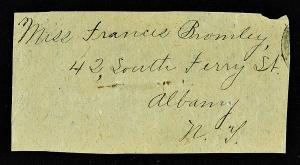 Miss Francis Bromley,
42, South Ferry St.
Albany
N. Y.